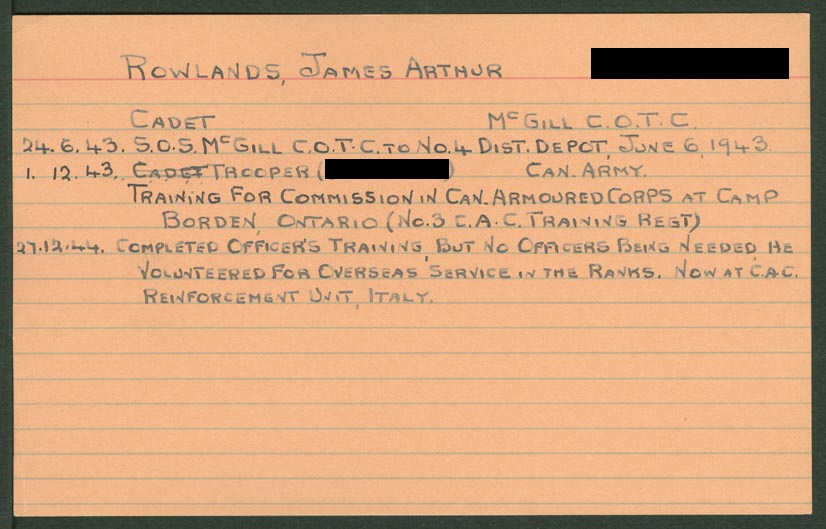 ROWLANDS, JAMES ARTHUR
CADET McGILL C.O.T.C.
24.6.43. S.O.S. McGILL C.O.T.C. TO No.4 DIST. DEPOT, JUNE 6, 1943.
1. 12. 43. CADET TROOPER ( ) CAN. ARMY.
TRAINING FOR COMMISSION IN CAN. ARMOURED CORPS AT CAMP
BORDEN, ONTARIO (No.3 C.A.C. TRAINING REGT)
27.12.44. COMPLETED OFFICER'S TRAINING, BUT NO OFFICERS BEING NEEDED, HE
VOLUNTEERED FOR OVERSEAS SERVICE IN THE RANKS. NOW AT C.A.C.
REINFORCEMENT UNIT, ITALY.